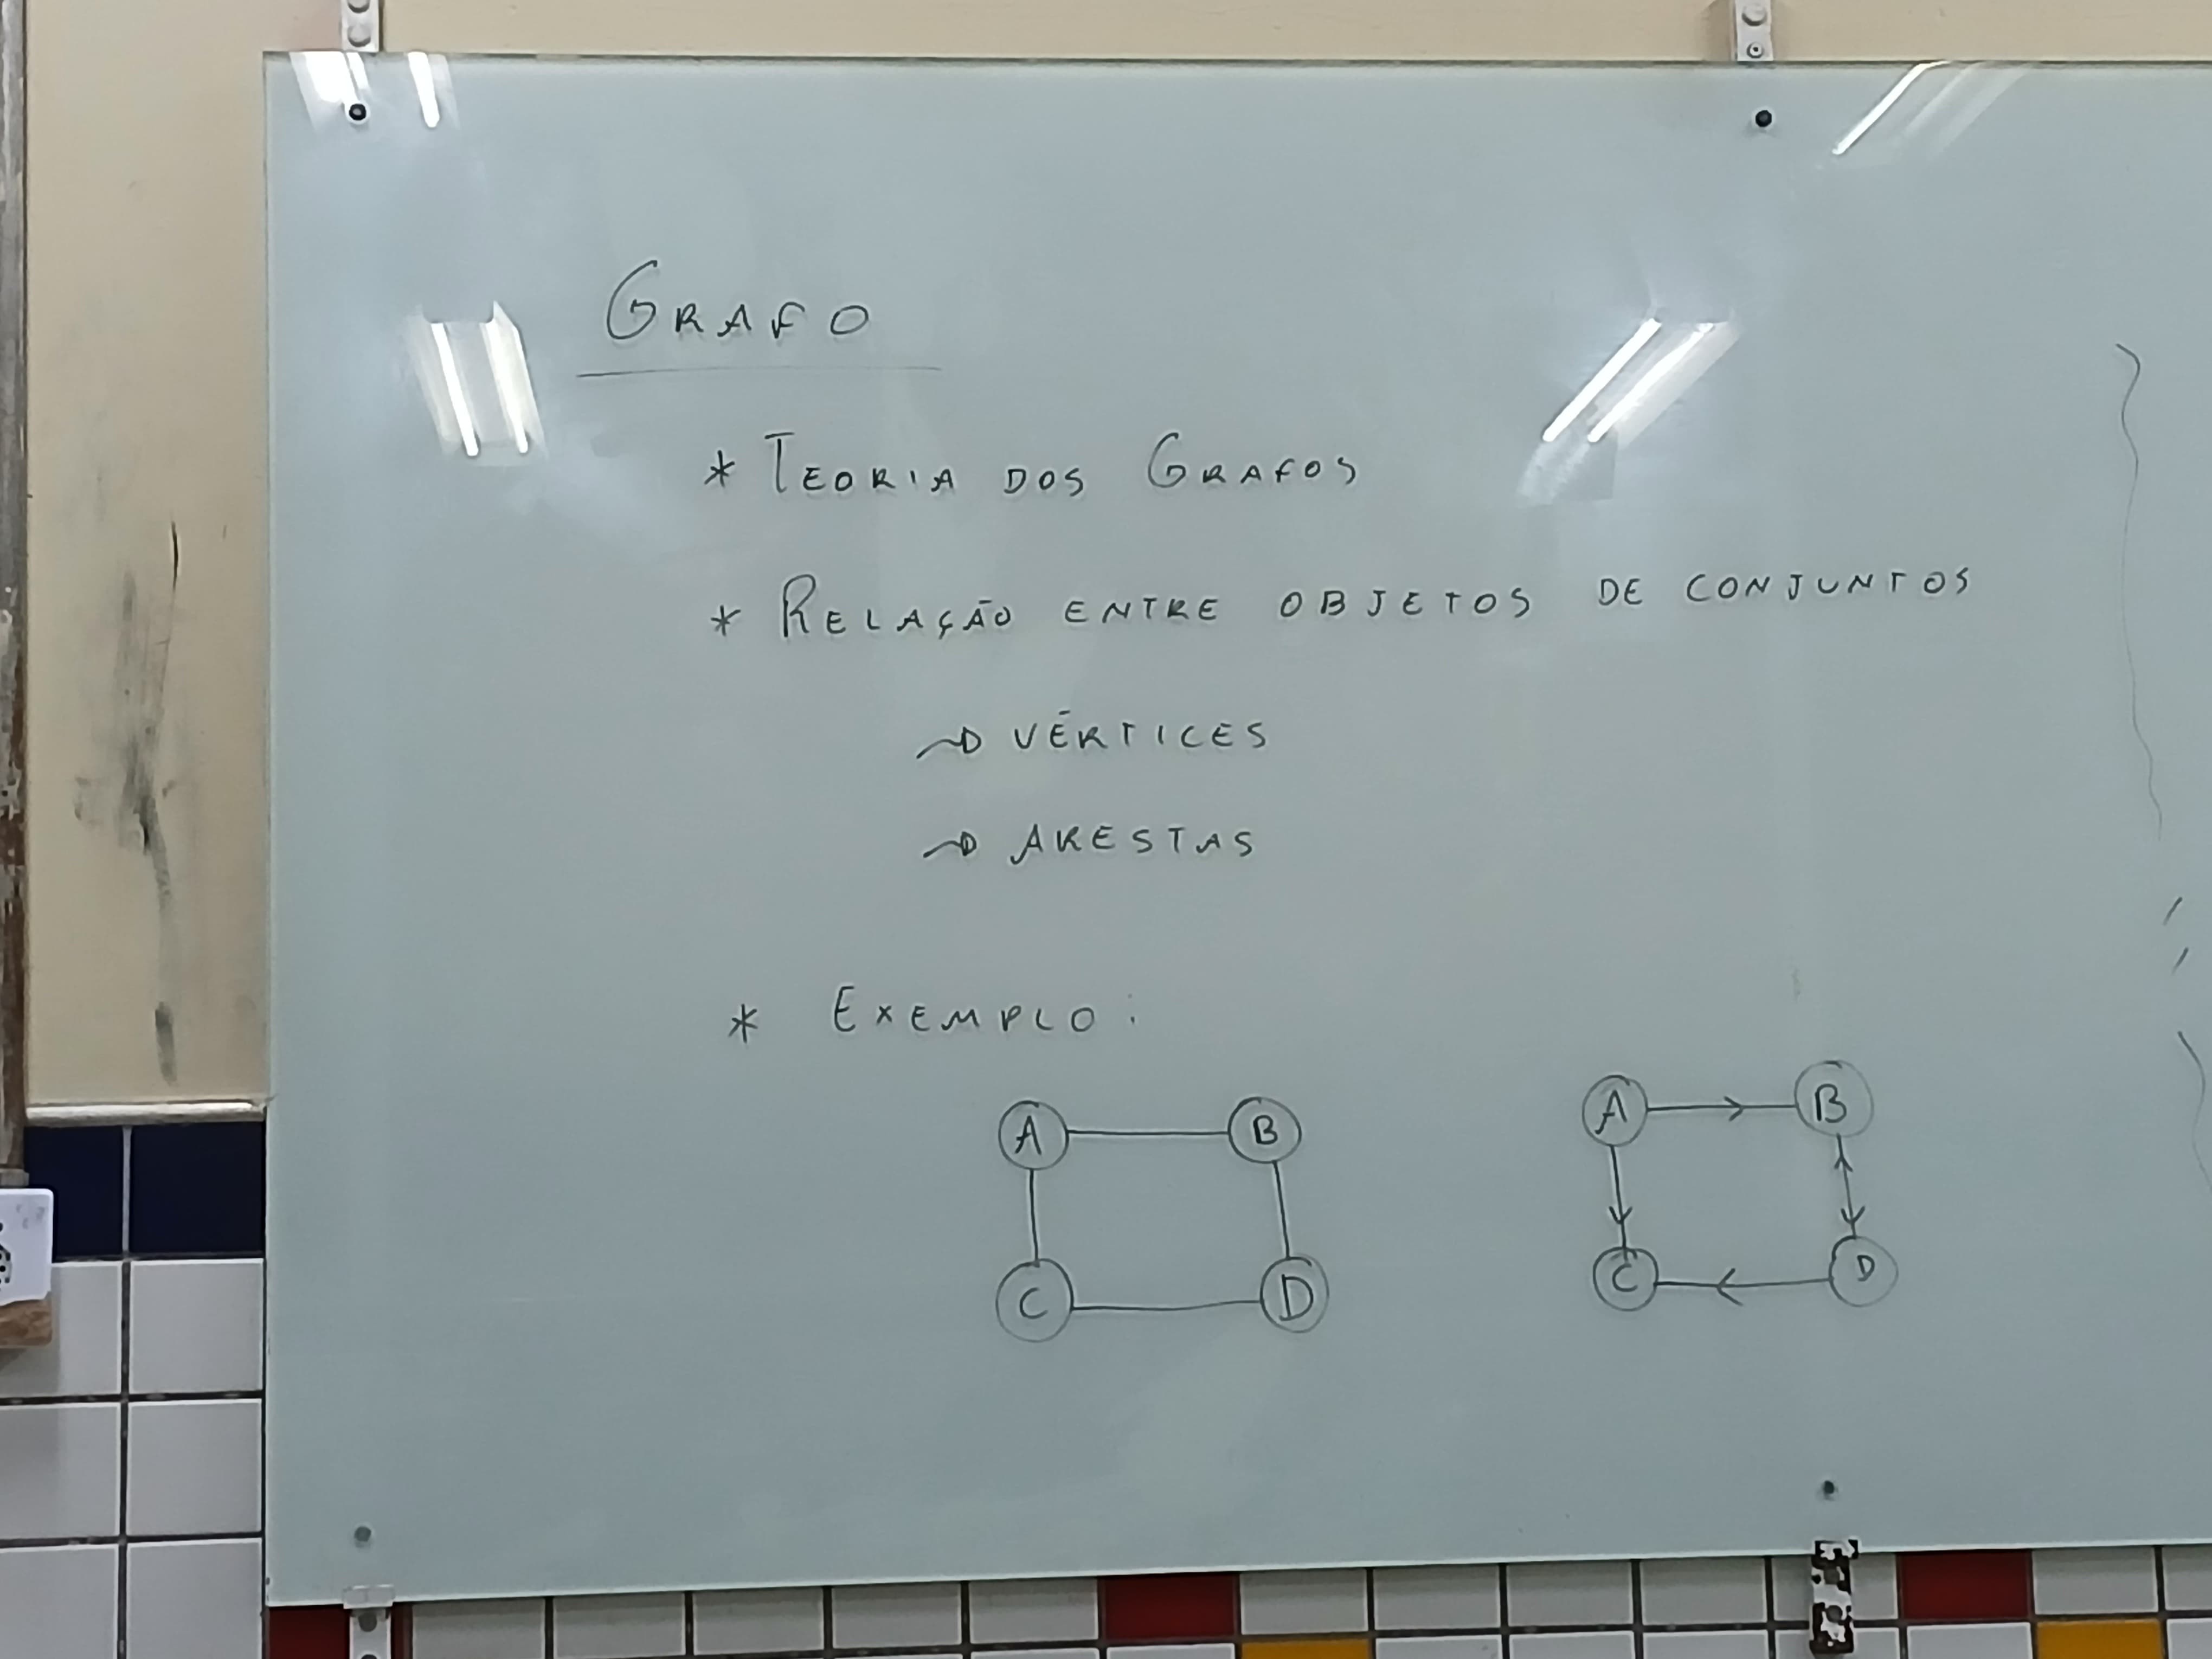 GRAFO
* TEORIA DOS GRAFOS
* RELAÇÃO ENTRE OBJETOS DE CONJUNTOS
VÉRTICES
ARESTAS
* EXEMPLO:
A B A B
C D C D